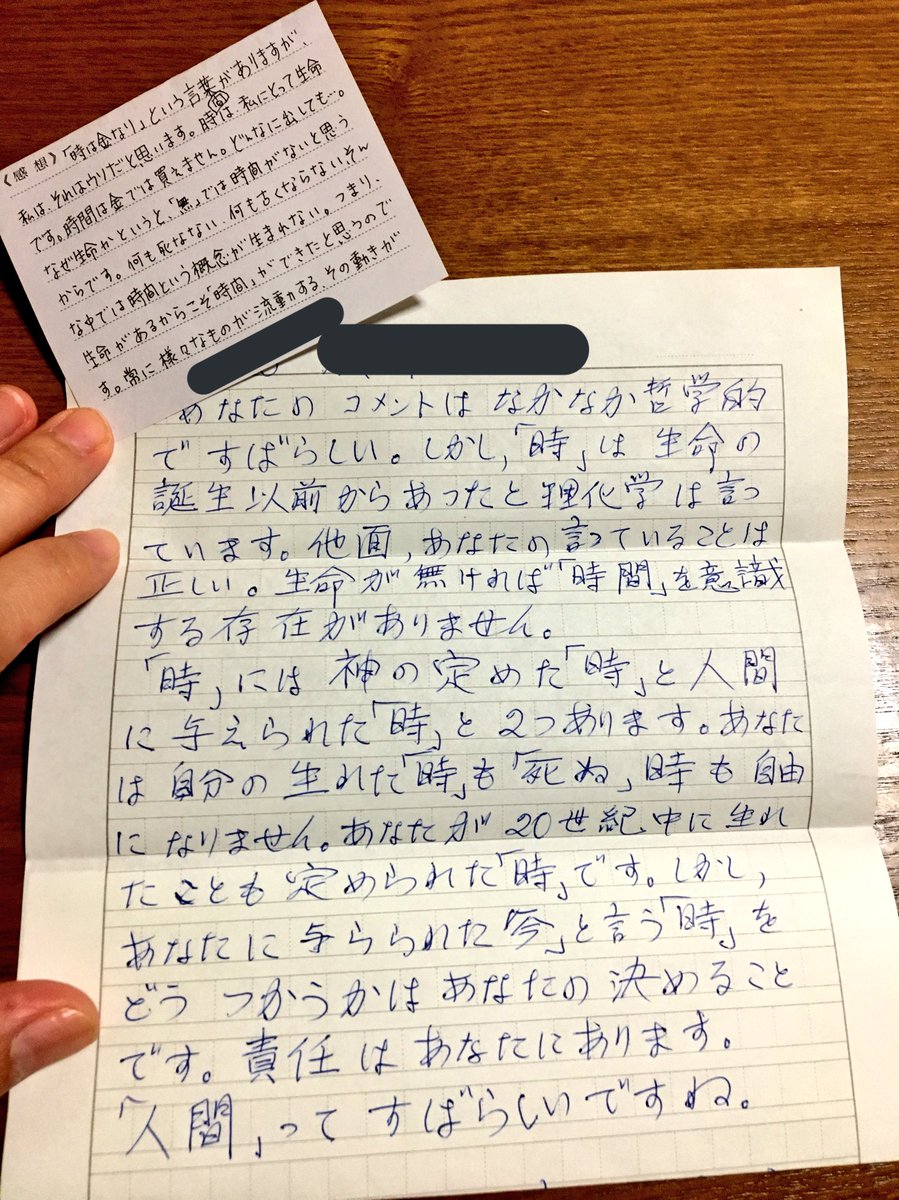 《感想》「時は金なり」という言葉がありますが、
私は、それはウソだと思います。時間は、私にとって生命
です。時間は金では買えません。どんなに出しても…。
なぜ生命かというと、「無」では時間がないと思う
からです。何も死なない、何も古くならないそん
な中では時間という概念が生まれない。つまり、
生命があるからこそ「時間」ができたと思うので
す。常に様々なものが流動する、その動きが
あなたのコメントはなかなか哲学的
ですばらしい。しかし、「時」は生命の
誕生以前からあったと理化学は言っ
ています。他面,あなたの言っていることは
正しい。生命が無ければ「時間」を意識
する存在がありません。
「時」には神の定めた「時」と人間
に与えられた「時」と2つあります。あなた
は自分の生れた「時」も「死ぬ」時も自由
になりません。あなたが20世紀中に生れ
たことも定められた「時」です。しかし,
あなたに与られた「今」と言う「時」を
どうつかうかはあなたの決めること
です。責任はあなたにあります。
「人間」ってすばらしいですね。